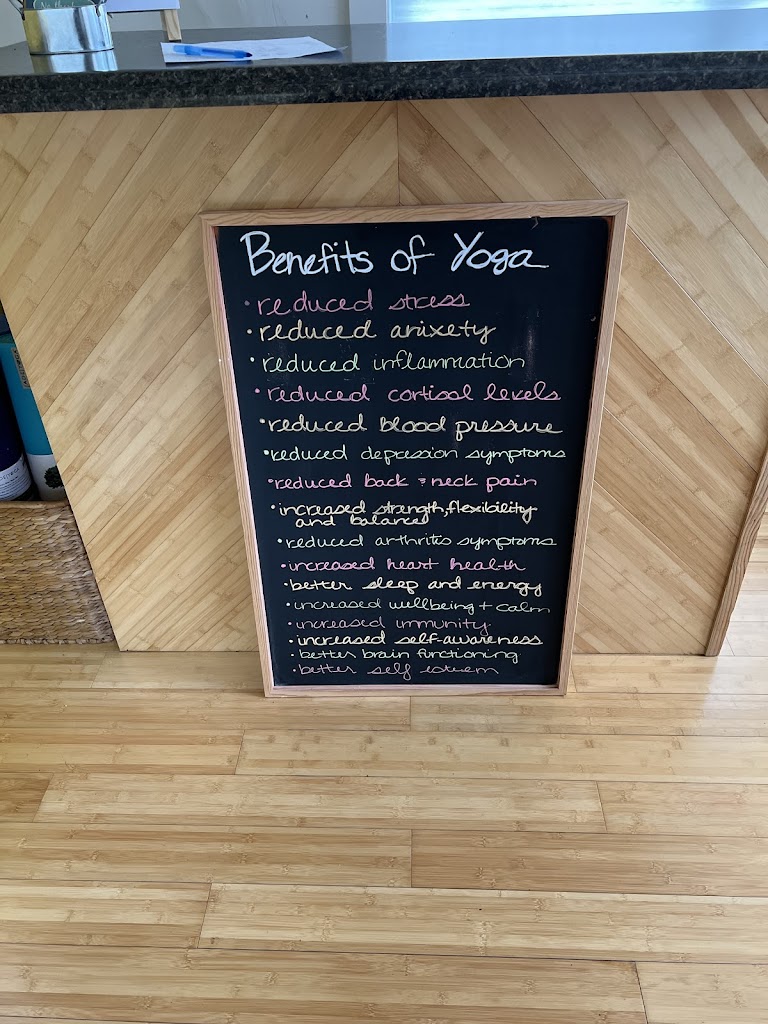 Benefits of Yoga
• reduced stress
• reduced anixety
• reduced inflammation
• reduced cortisol levels
• reduced blood pressure
• reduced depression symptoms
• reduced back & neck pain
• increased strength, flexibility
and balance
• reduced arthritis symptoms
• increased heart health
• better sleep and energy
• increased wellbeing + calm
• increased immunity
• increased self-awareness
• better brain functioning
• better self esteem